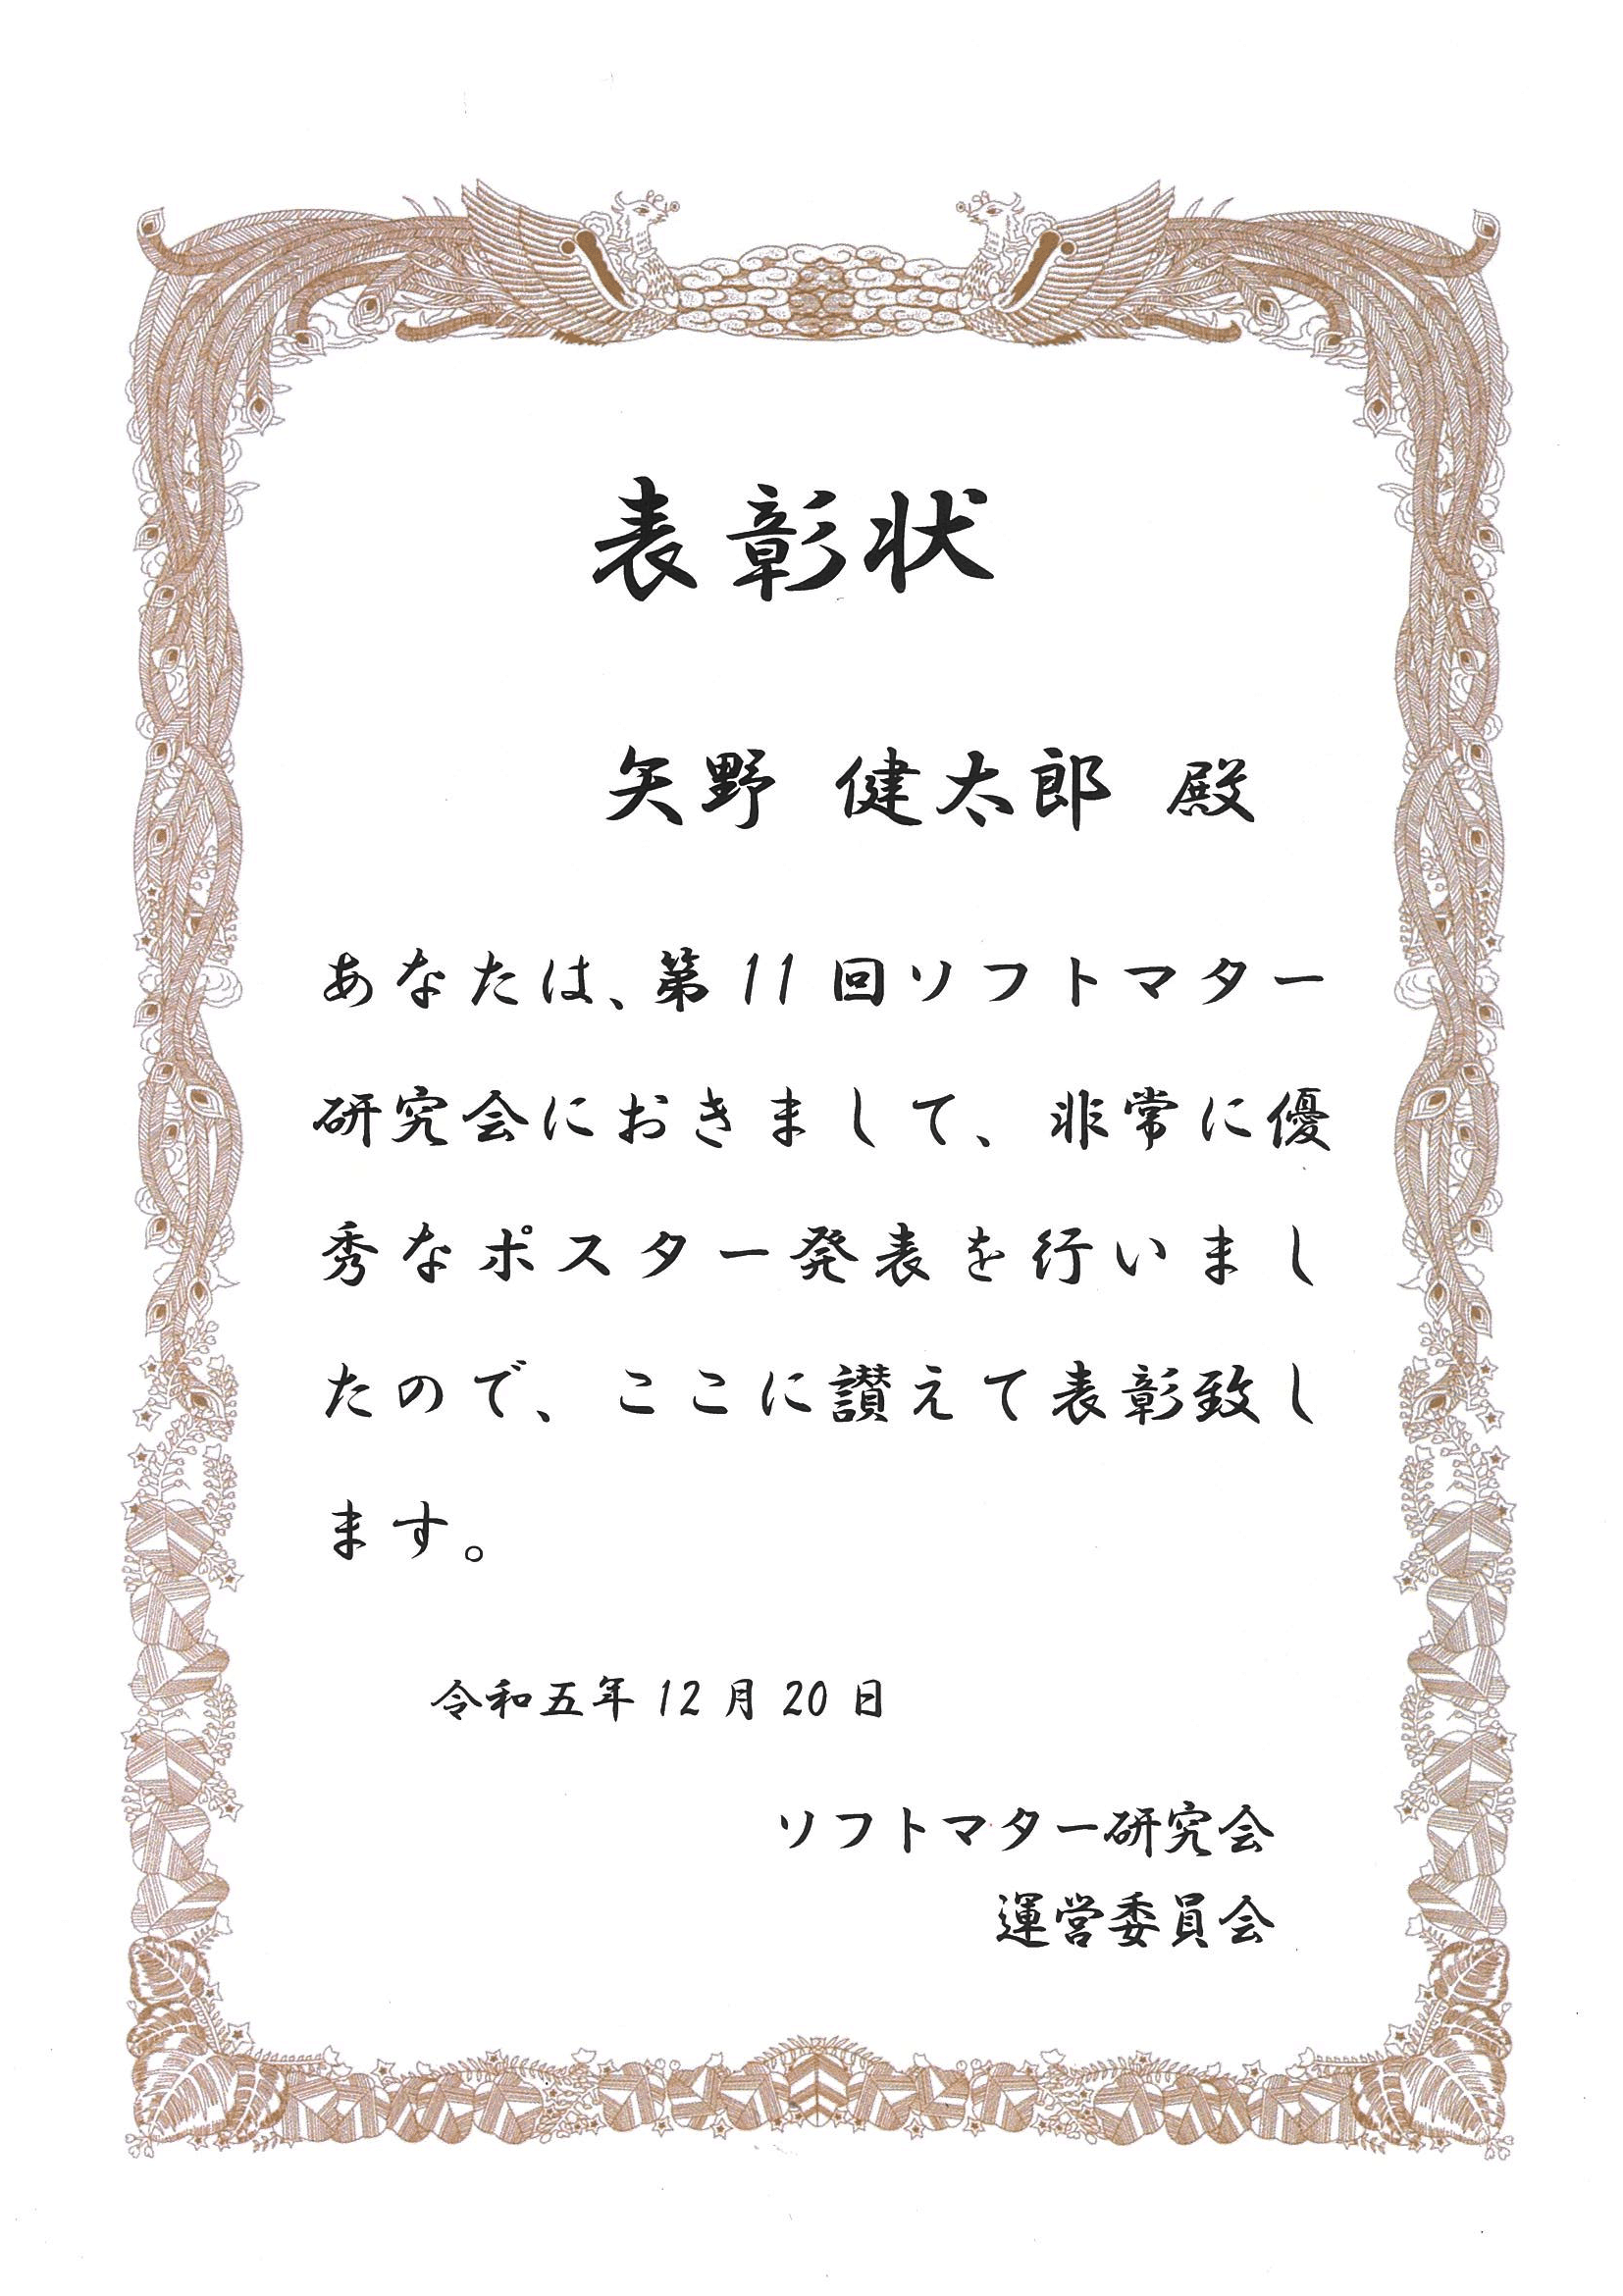 表彰状
矢野 健太郎 殿
あなたは、第 11 回ソフトマター
研究会におきまして、非常に優
秀なポスター発表を行いまし
たので、ここに讃えて表彰致し
ます。
令和五年 12 月 20 日
ソフトマター研究会
運営委員会